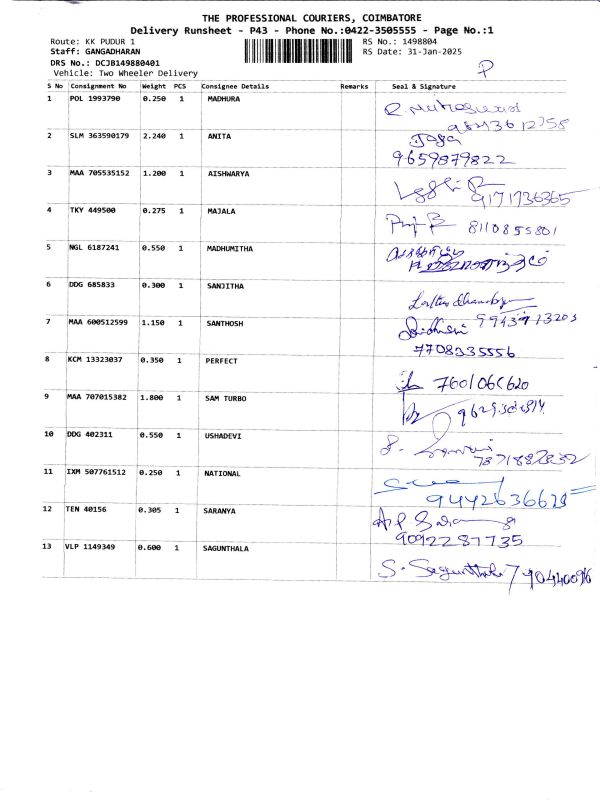 THE PROFESSIONAL COURIERS, COIMBATORE
Delivery Runsheet - P43 - Phone No.:0422-3505555 - Page No.:1
Route: KK PUDUR 1 RS No.: 1498804
Staff: GANGADHARAN RS Date: 31-Jan-2025
DRS No.: DCJB149880401
Vehicle: Two Wheeler Delivery
P
S No Consignment No Weight PCS Consignee Details Remarks Seal & Signature
1 POL 1993790 0.250 1 MADHURA
2 SLM 363590179 2.240 1 ANITA
9659879822
3 MAA 705535152 1.200 1 AISHWARYA
9171736365
4 TKY 449500 0.275 1 MAJALA
8110855801
5 NGL 6187241 0.550 1 MADHUMITHA
6 DDG 685833 0.300 1 SANJITHA
7 MAA 600512599 1.150 1 SANTHOSH
7708335556
8 KCM 13323037 0.350 1 PERFECT
9 MAA 707015382 1.800 1 SAM TURBO
10 DDG 402311 0.550 1 USHADEVI
11 IXM 507761512 0.250 1 NATIONAL
9442636628
12 TEN 40156 0.305 1 SARANYA
9092287735
13 VLP 1149349 0.600 1 SAGUNTHALA
S. Sagunthala